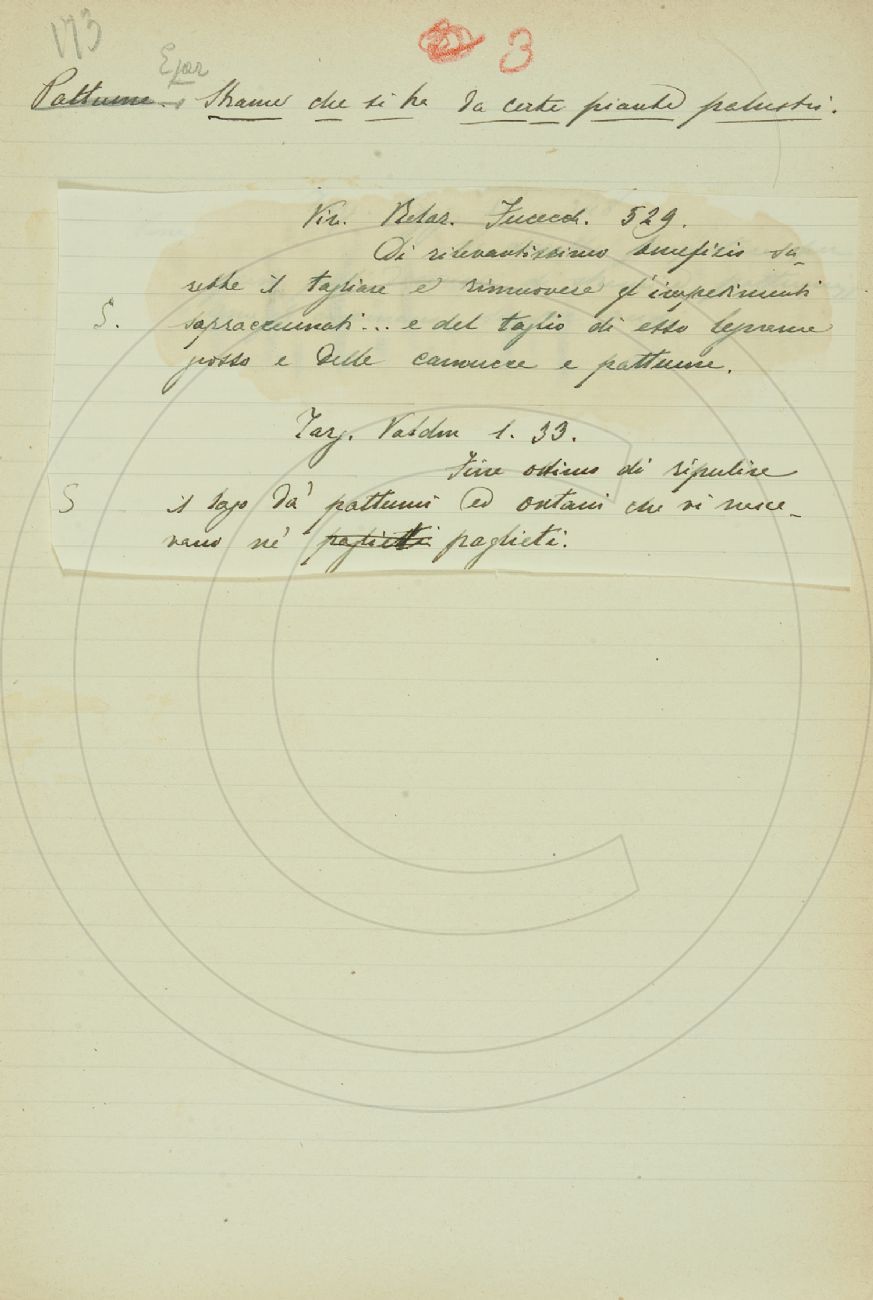 173
3
E poi
Pattume. Strame che si ha da certe piante palustri.
Viv. Relaz. Fucecch. 529.
Di rilevantissimo benefizio sa-
rebbe il tagliare e rimuovere gl'impedimenti
S. sopraccennati... e del taglio di esso legname
grosso e delle cannucce e pattume.
Targ. Valdin 1. 33.
Fine ottimo di ripulire
S il lago da' pattumi ed ontani che vi nasce-
vano né paglietti paglieti.